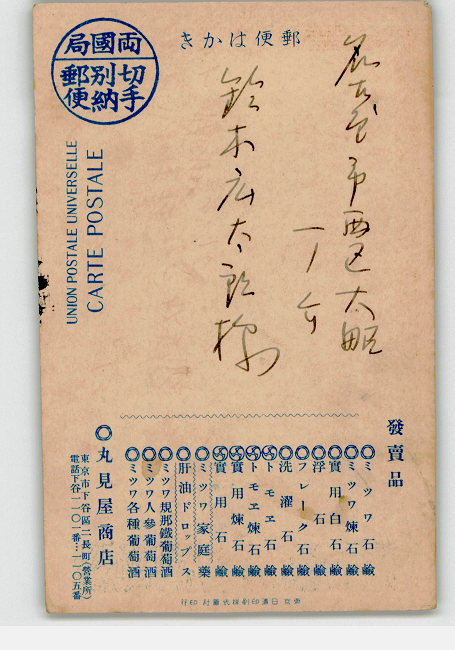 郵便はかき
両國局
切手別納郵便
UNION POSTALE UNIVERSELLE
CARTE POSTALE
名古屋市西区大
鈴木広太郎様
發賣品
◎ミツワ石鹼
◎ミツワ煉石鹼
◎實用白石鹼
◎浮石鹼
◎フレーク石鹼
◎洗濯石鹼
トモヱ石鹼
トモヱ煉石鹼
實用煉石鹼
實用石鹼
◎ミツワ家庭藥
◎肝油ドロップス
◎ミツワ規那鐵葡萄酒
◎ミツワ人參葡萄酒
◎ミツワ各種葡萄酒
◎丸見屋商店
東京市下谷區二長町(營業所)
電話下谷一一〇一番…一一〇五番